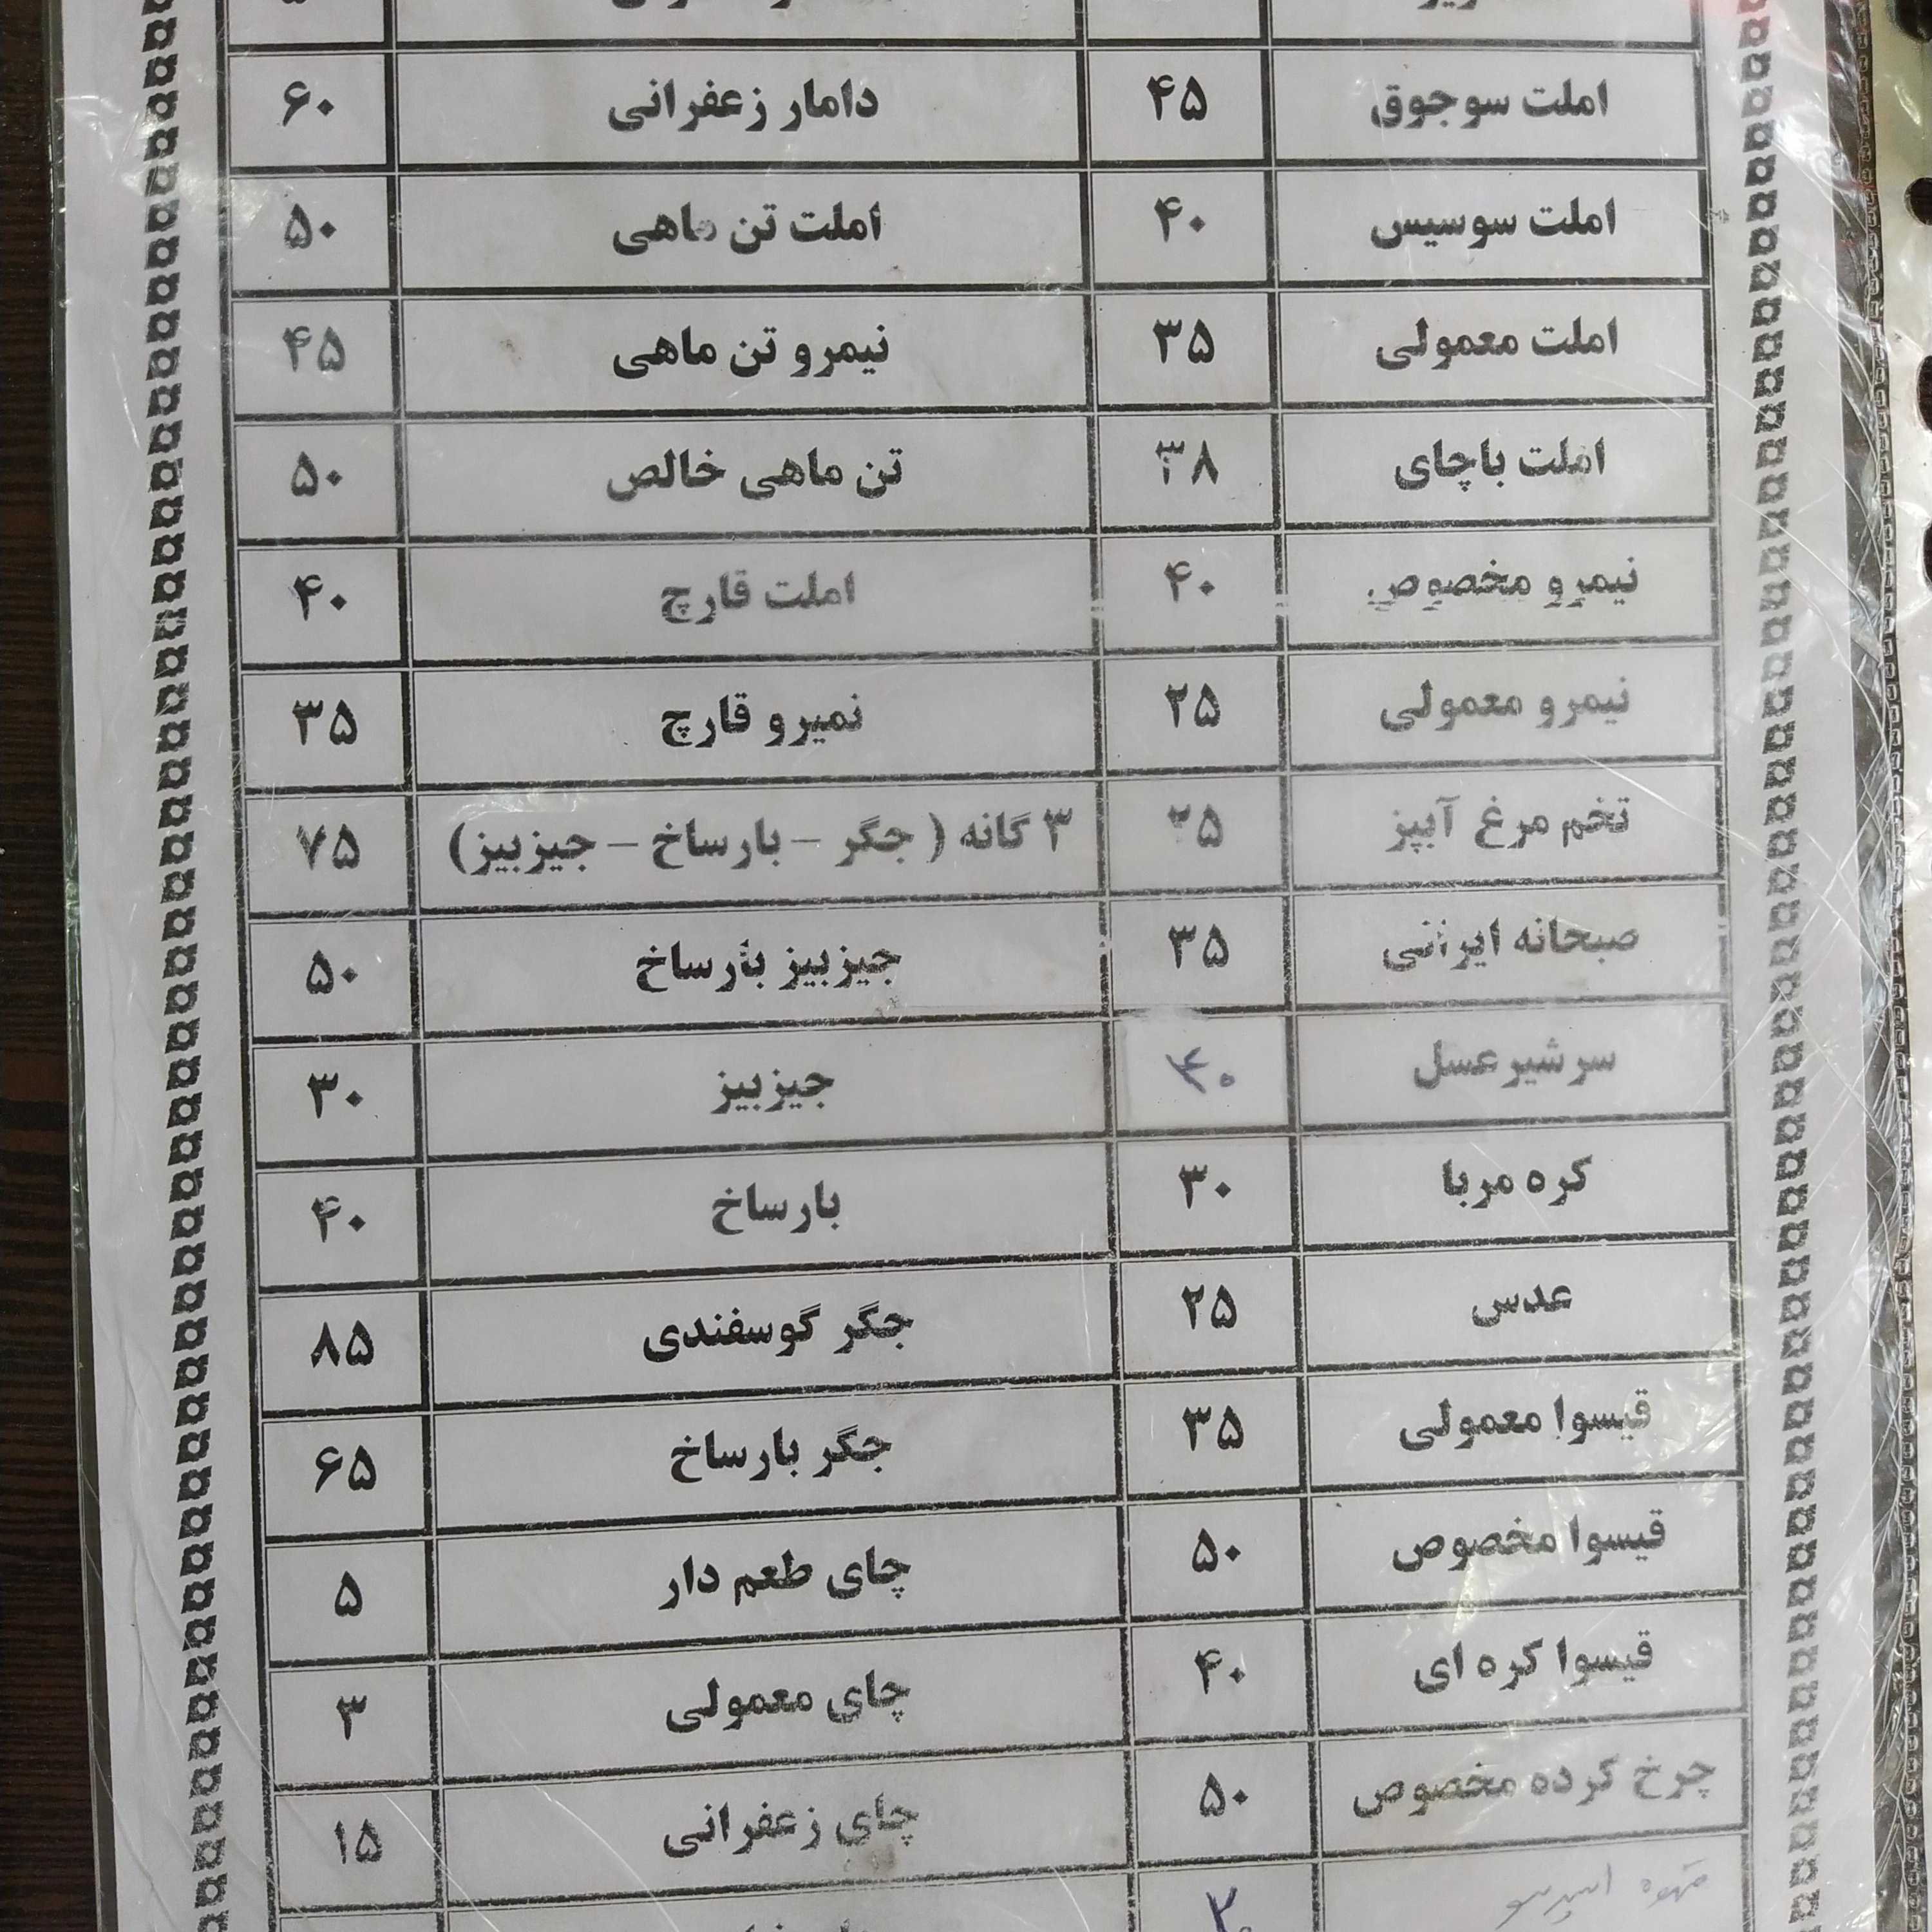 املت سوجوق ۴۵ دامار زعفرانی ۶۰
املت سوسیس ۴۰ املت تن ماهی ۵۰
املت معمولی ۳۵ نیمرو تن ماهی ۴۵
املت باچای ۳۸ تن ماهی خالص ۵۰
نیمرو مخصوص ۴۰ املت قارچ ۴۰
نیمرو معمولی ۲۵ نمیرو قارچ ۳۵
تخم مرغ آبپز ۲۵ ۳ گانه ( جگر – بارساخ – جیزبیز) ۷۵
صبحانه ایرانی ۳۵ جیزبیز بارساخ ۵۰
سرشیر عسل ۴۰ جیزبیز ۳۰
کره مربا ۳۰ بارساخ ۴۰
عدس ۲۵ جگر گوسفندی ۸۵
قیسوا معمولی ۳۵ جگر بارساخ ۶۵
قیسوا مخصوص ۵۰ چای طعم دار ۵
قیسوا کره ای ۴۰ چای معمولی ۳
چرخ کرده مخصوص ۵۰ چای زعفرانی ۱۵
قهوه اسپرسو ۲۰